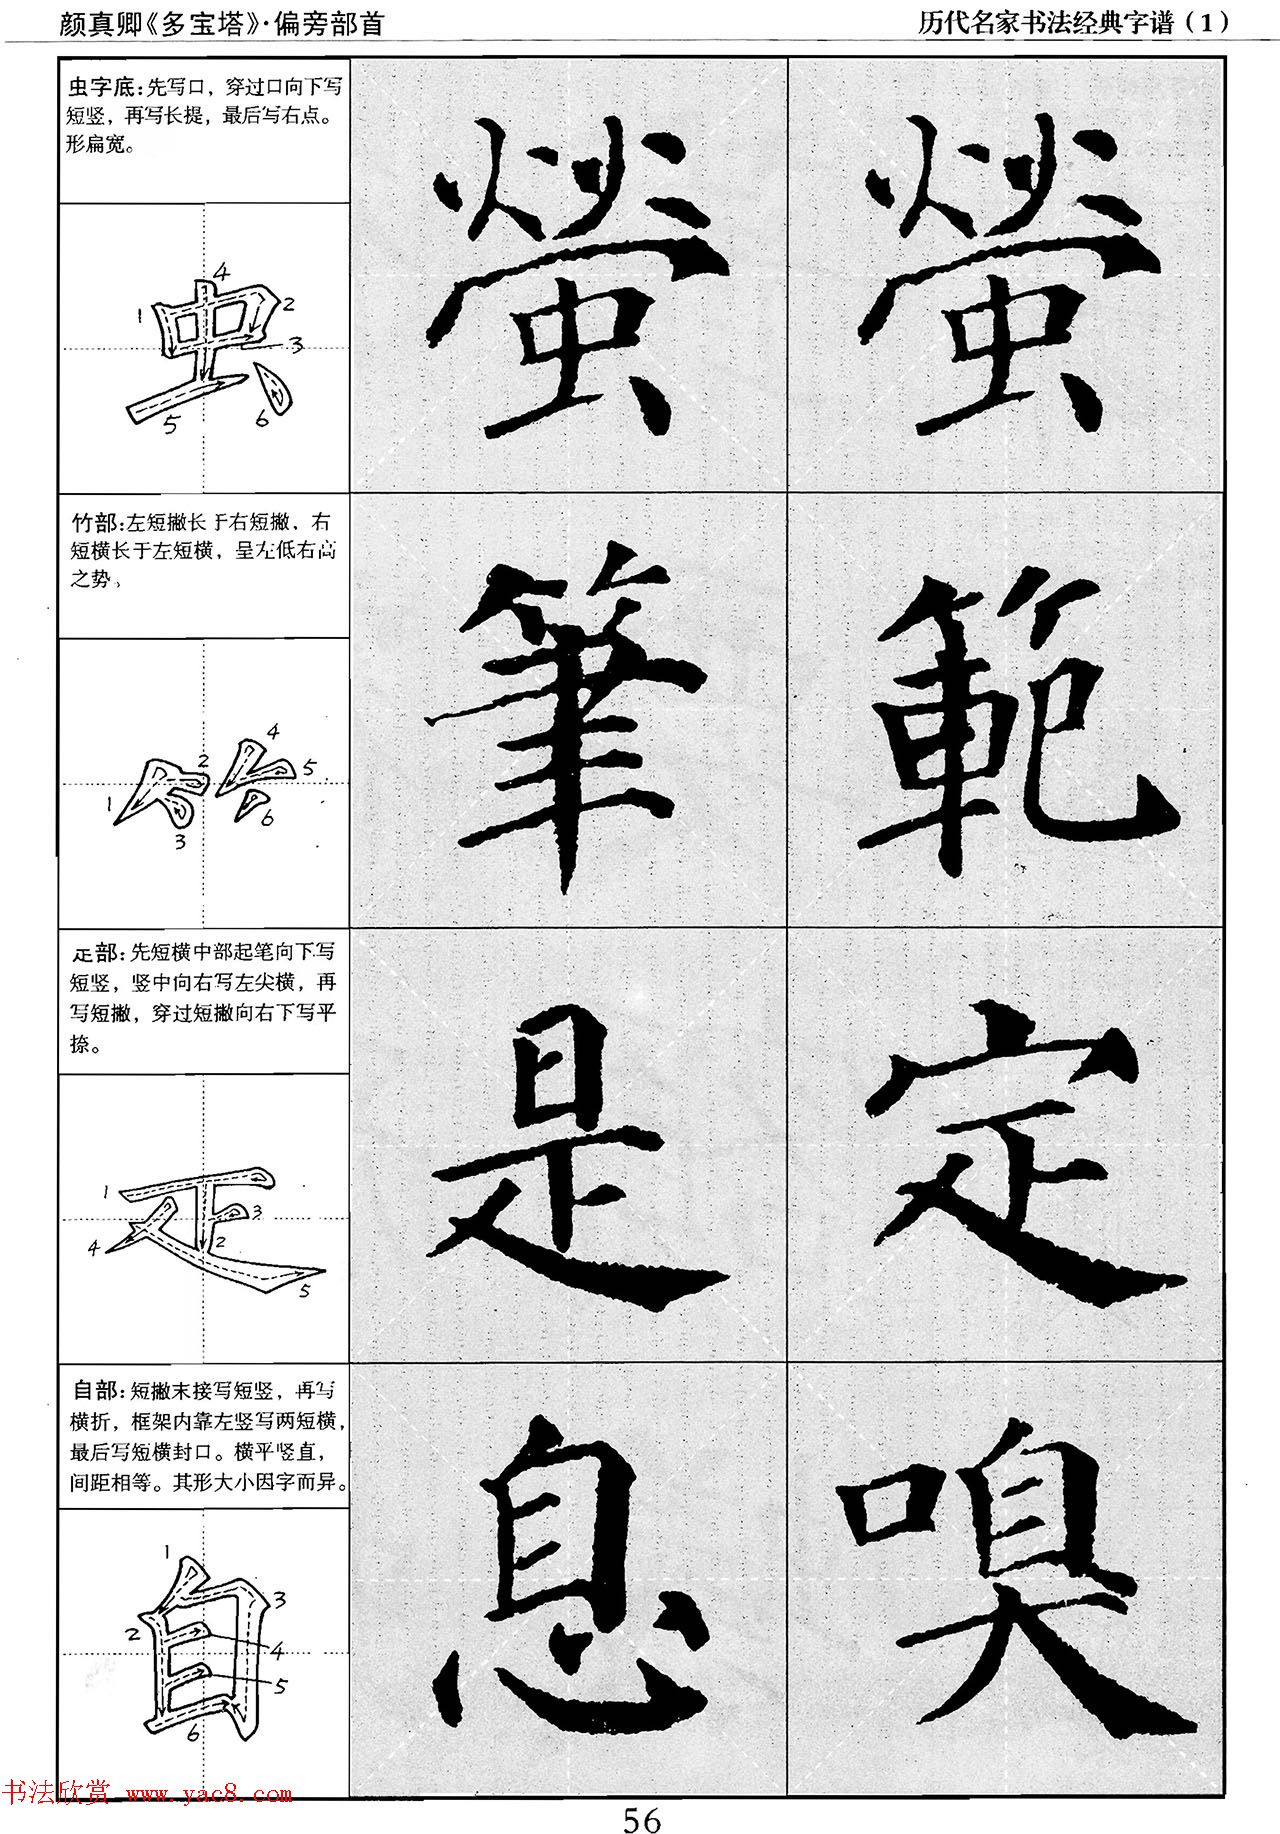 颜真卿《多宝塔》·偏旁部首
历代名家书法经典字谱（1）
虫字底：先写口，穿过口向下写
短竖，再写长提，最后写右点。
形扁宽。
4
1
2
3
5
6
螢
螢
竹部：左短撇长于右短撇，右
短横长于左短横，呈左低右高
之势。
4
2
5
1
6
3
筆
範
疋部：先短横中部起笔向下写
短竖，竖中向右写左尖横，再
写短撇，穿过短撇向右下写平
捺。
1
3
4
2
5
是
定
自部：短撇末接写短竖，再写
横折，框架内靠左竖写两短横，
最后写短横封口。横平竖直，
间距相等。其形大小因字而异。
1
3
2
4
5
6
息
嗅
书法欣赏 www.yac8.com
56